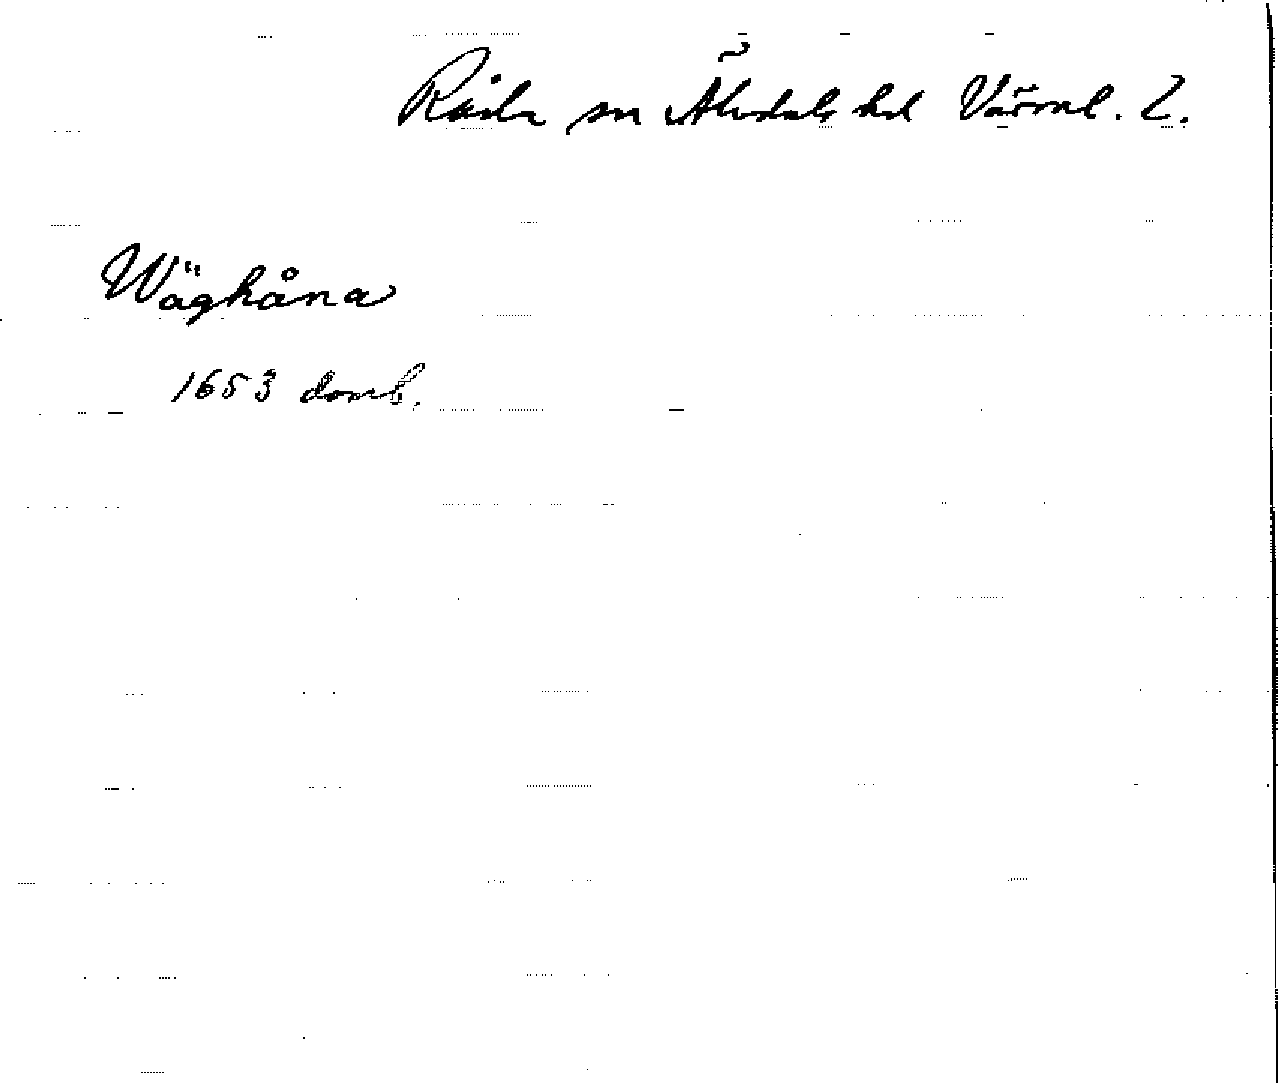 Råda sn Älvdals hd Värml. L.
Wäghåna
1653 domb.